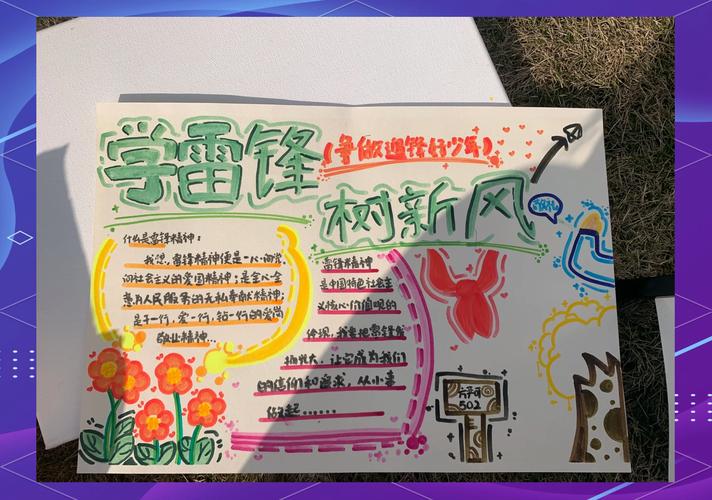 学雷锋
(争做追锋好少年)
树新风
敬礼
什么是雷锋精神:
我想,雷锋精神便是一心向党
向社会主义的爱国精神;是全心全
意为人民服务的无私奉献精神;
是干一行,爱一行,钻一行的爱岗
敬业精神…
雷锋精神
是中国特色社会主
义核心价值观的
体现,我要把雷锋发
扬光大,让它成为我们
的信仰和追求,从小事
做起……
502